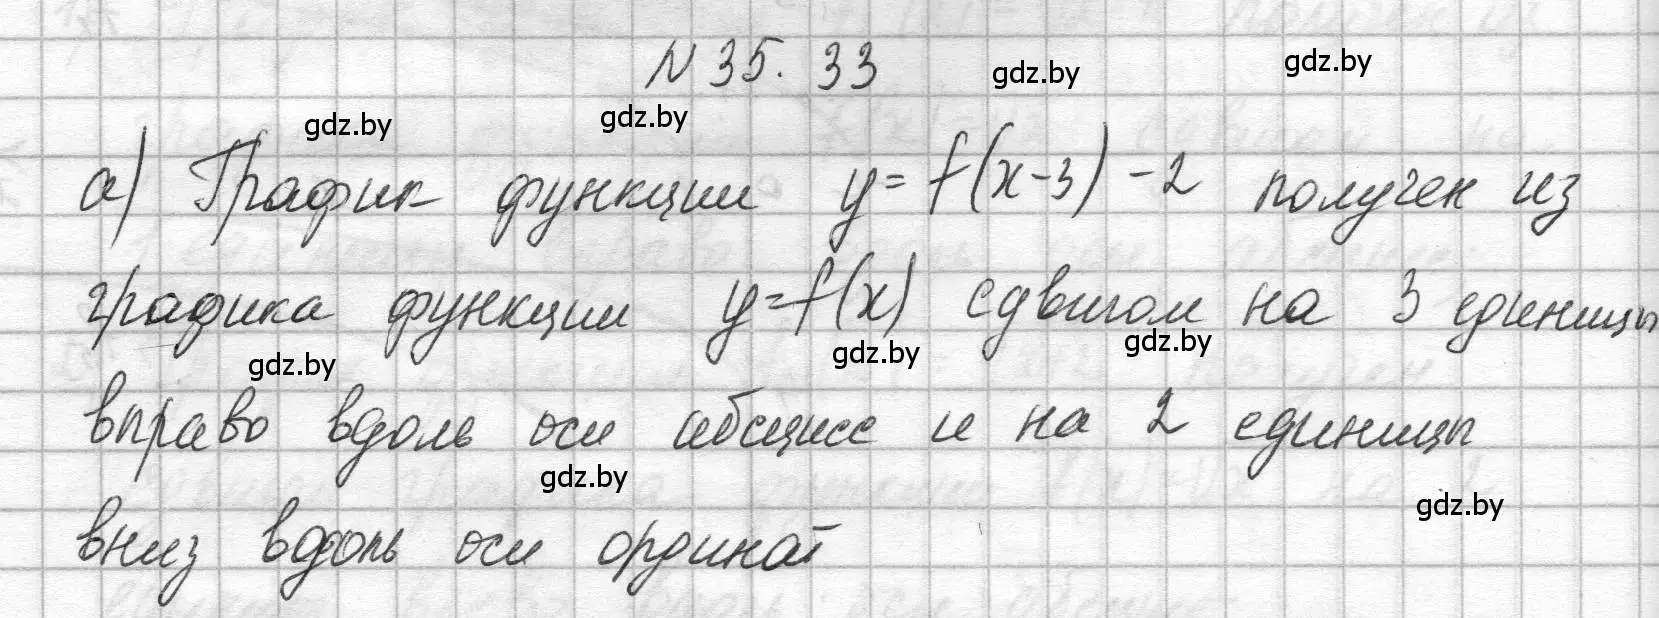 N 35. 33
а) График функции y = f(x-3) -2 получен из
графика функции y=f(x) сдвигом на 3 единицы
вправо вдоль оси абсцисс и на 2 единицы
вниз вдоль оси ординат
gdz.by
gdz.by
gdz.by
gdz.by
gdz.by
gdz.by
gdz.by
gdz.by
gdz.by